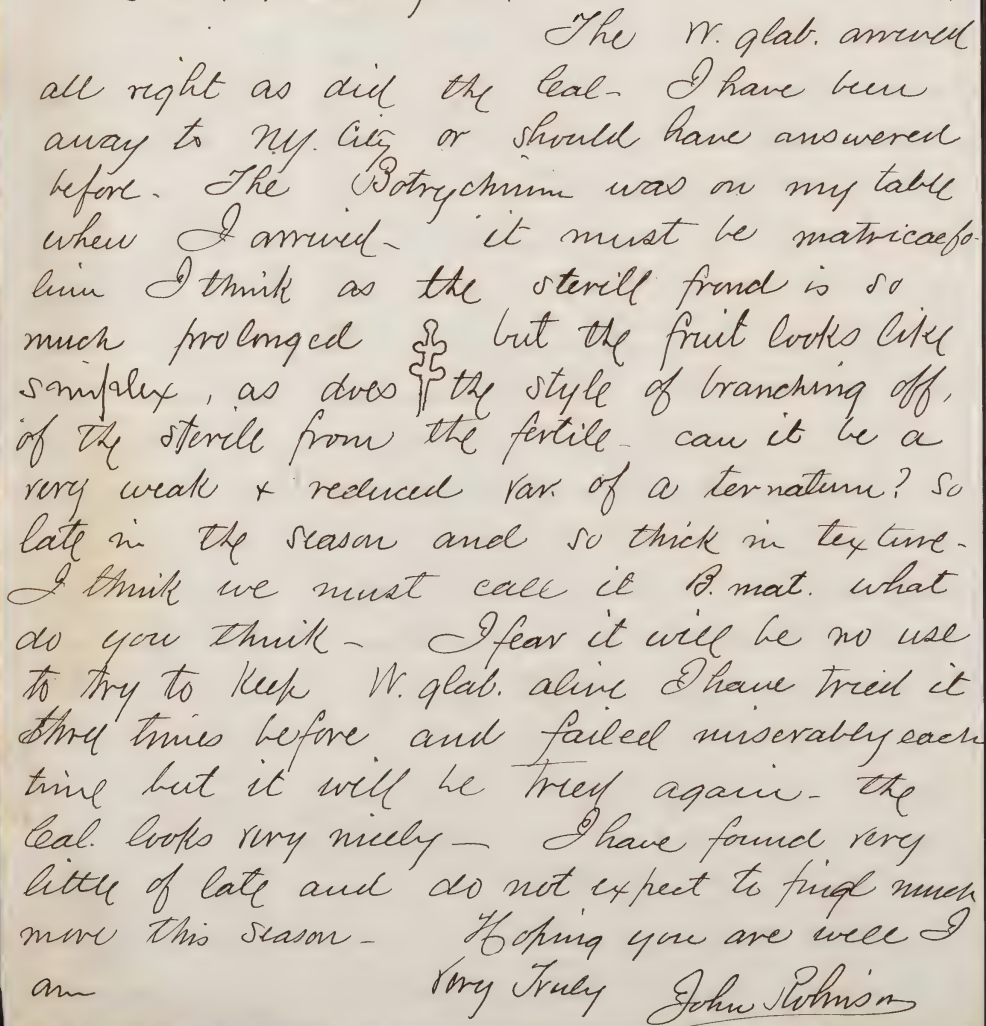 The W. glab. arrived
all right as did the Cal- I have been
away to N.Y. City or should have answered
before. The Botrychium was on my table
when I arrived- it must be matricaefo-
lium I think as the sterill frond is so
much prolonged but the fruit looks like
simplex, as does the style of branching off,
of the sterile from the fertile- can it be a
very weak + reduced var. of a ternatum? So
late in the season and so thick in texture-
I think we must call it B. mat. what
do you think- I fear it will be no use
to try to Keep W. glab. alive I have tried it
three times before and failed miserably each
time but it will be tried again- the
Cal. looks very nicely- I have found very
little of late and do not expect to find much
more this season- Hoping you are well I
am Very Truly John Robinson